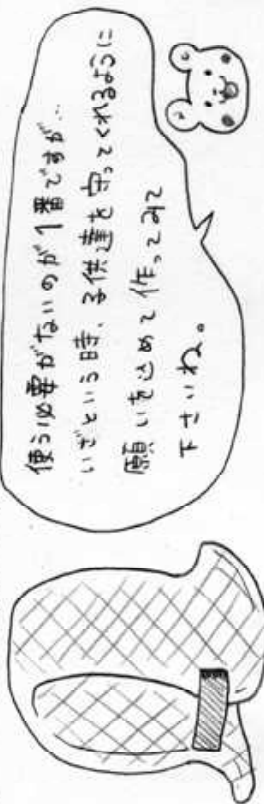 使う必要がないのが1番ですが…
いざという時、子供達を守ってくれるように
願いを込めて作ってみて
下さいね。